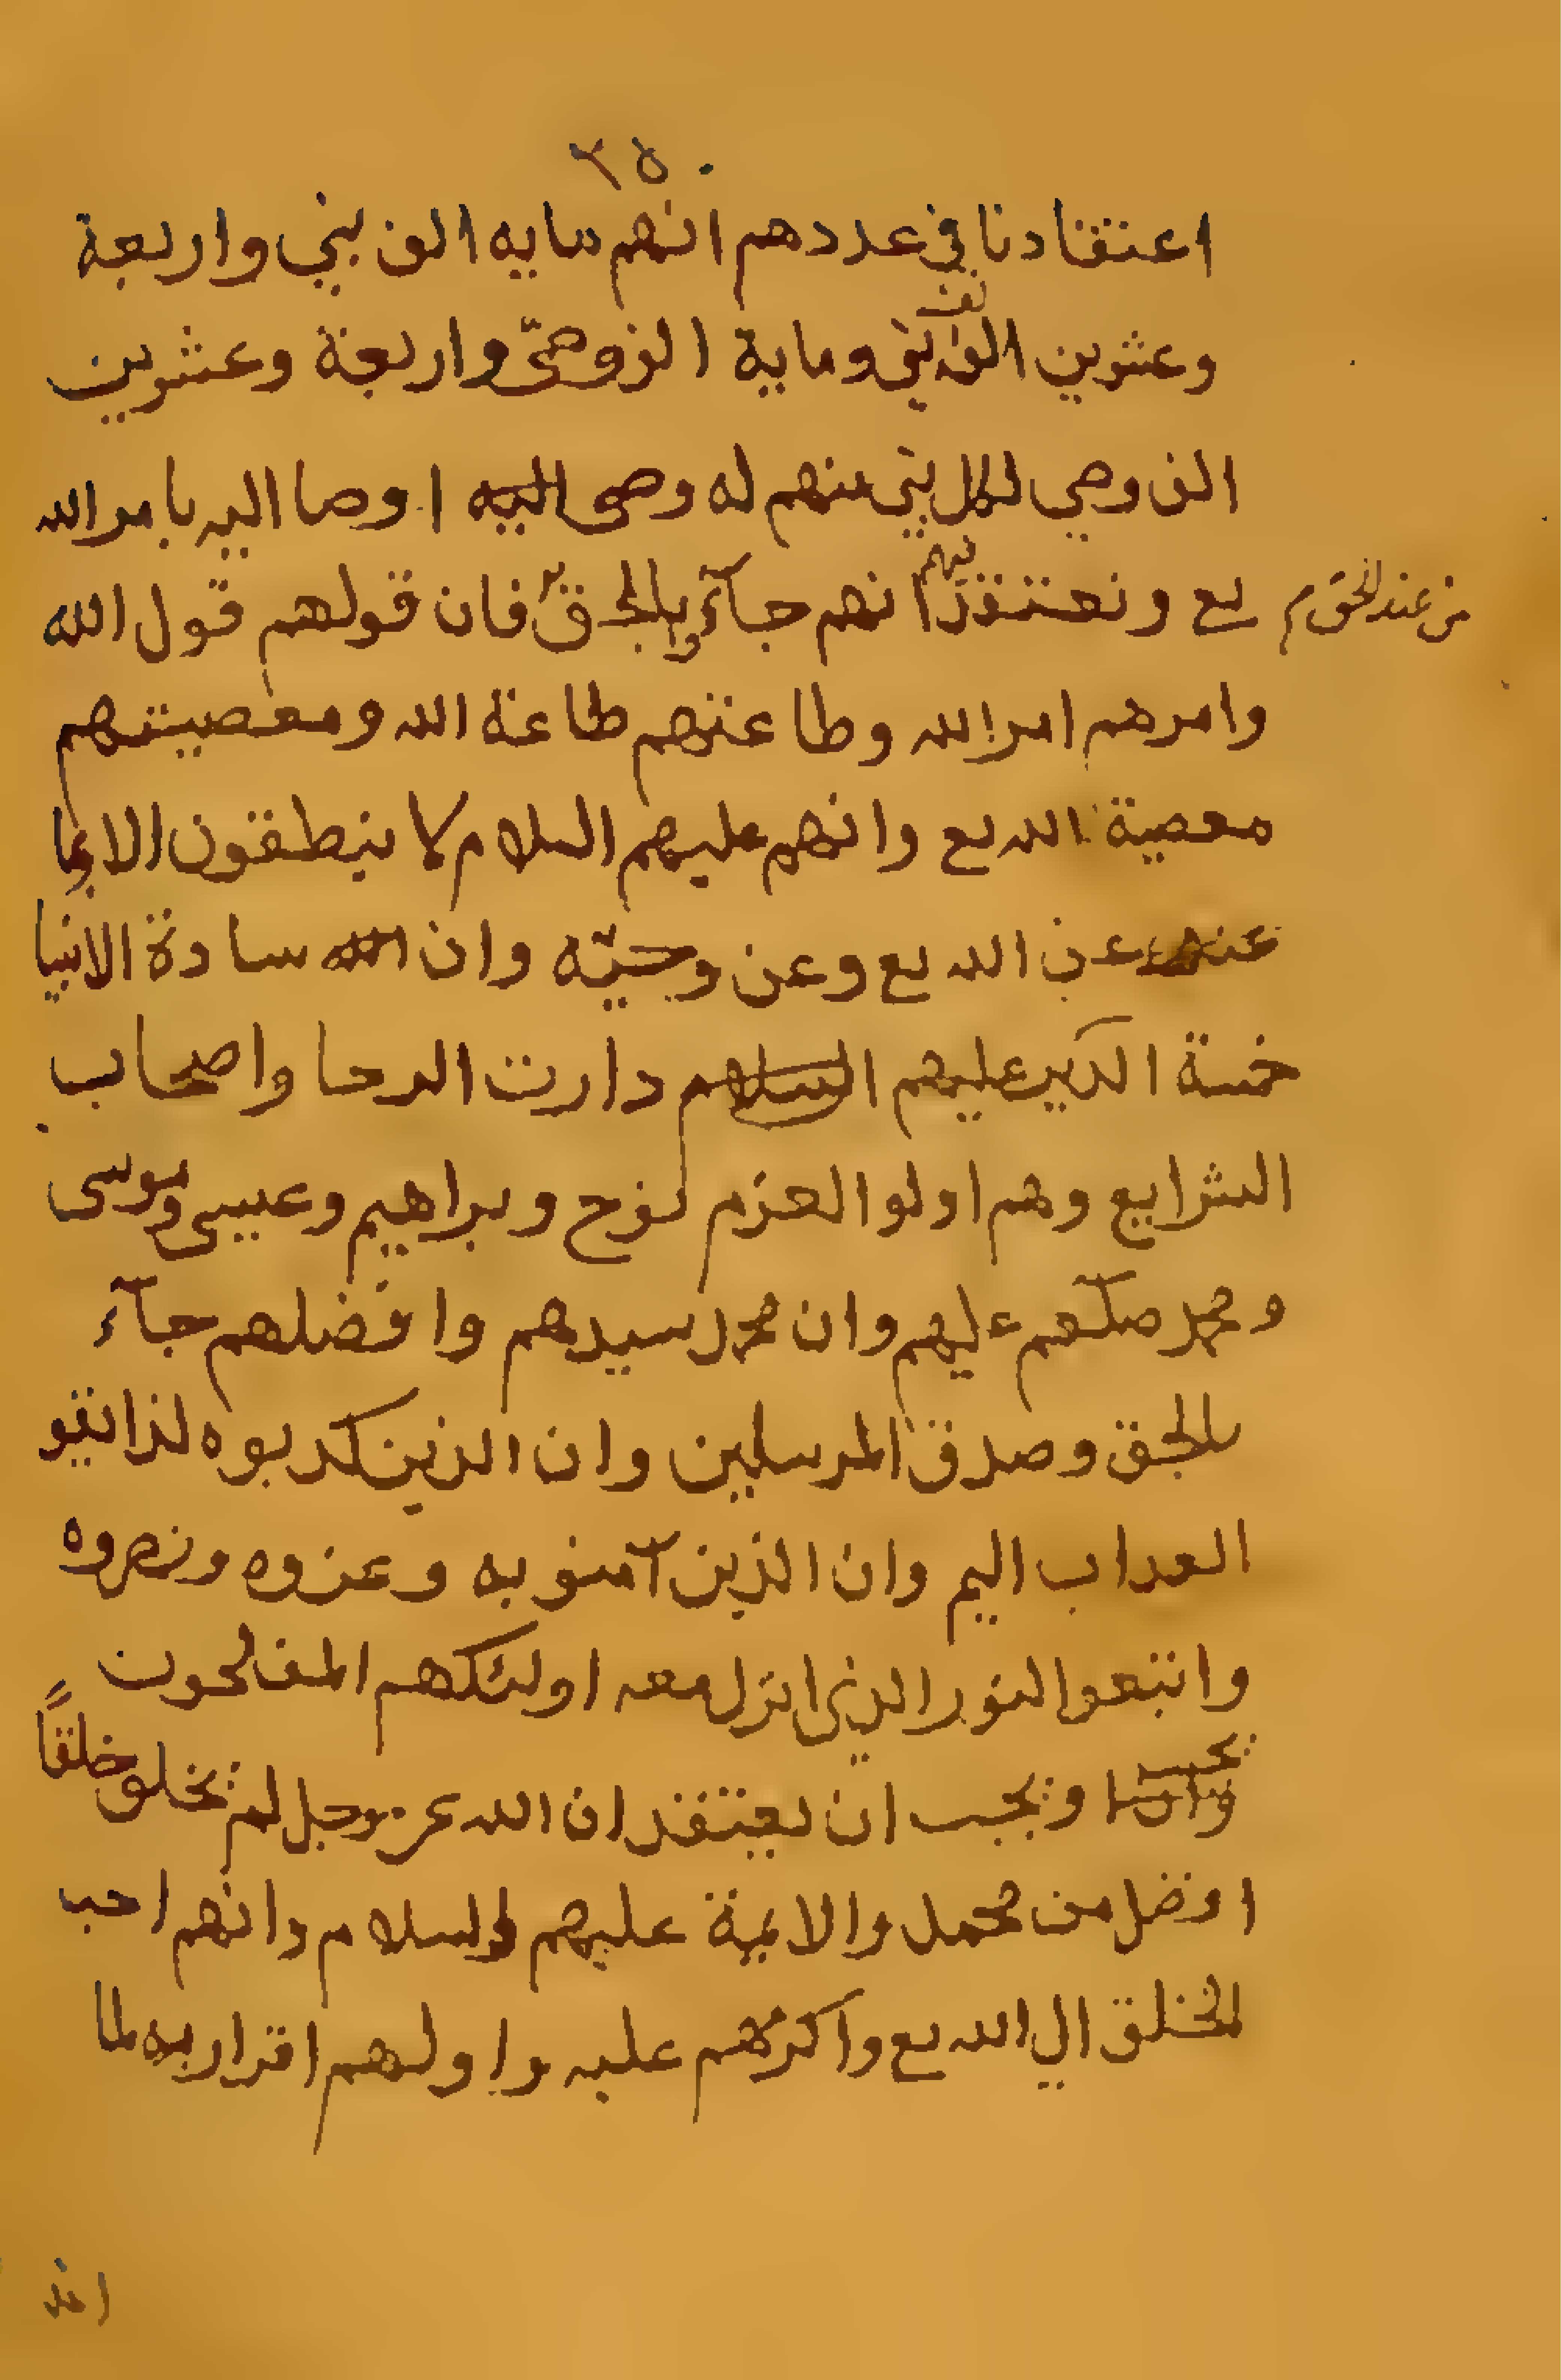 ٢٥٠
اعتقادنا في عددهم انهم مايه الف نبي واربعة
وعشرين الف نبي وماية الف وصيّ واربعة وعشرين
الف وصي لكل نبي منهم له وصى اليه اوصا اليه بامر الله
تع ونعتقد فيهم انهم جآؤ بالحق من عند الحق فان قولهم قول الله
وامرهم امر الله وطاعتهم طاعة الله ومعصيتهم
معصية الله تع وانهم عليهم السلام لا ينطقون الا
عن الله تع وعن وحيّه وان سادة الانبيا
خمسة الذين عليهم دارت الرحا واصحاب
الشرايع وهم اولو العزم نوح وبراهيم وعيسى وموسى
ومحمد صلعم عليهم وان محمد سيدهم وافضلهم جآء
بالحق وصدق المرسلين وان الذين كدبوه لذائقو
العداب اليم وان الذين آمنو به وعزوه ونصروه
واتبعو النور الذي انزل معه اولئكهم المفلحون
ويجب ان يعتقد ان الله عز وجل لم يخلق خلقاً
افضل من محمد والايمة عليهم السلام وانهم احب
الخلق الي الله تع واكرمهم عليه واولهم اقرار به لما
اخذ